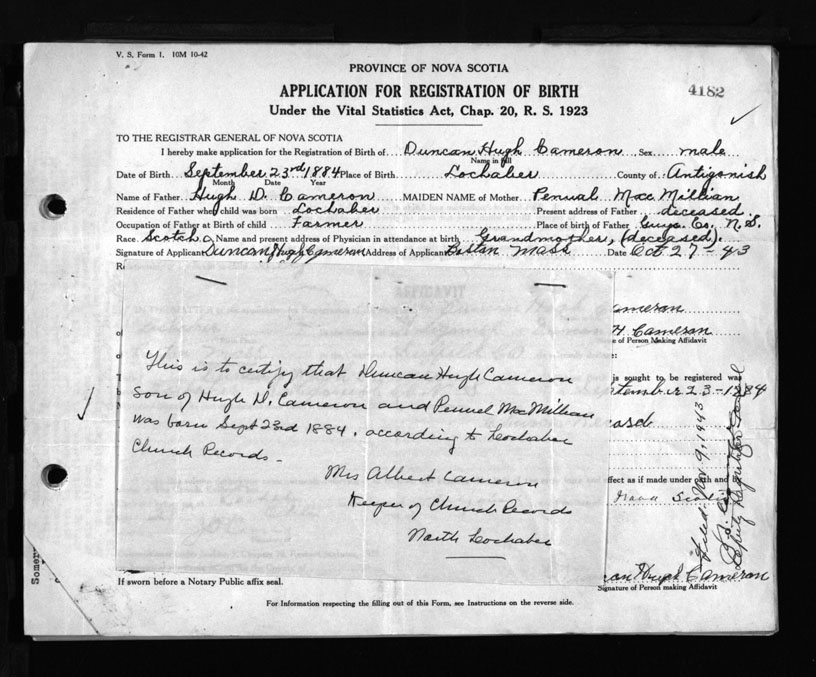 V. S. Form 1. 10M 10-42
PROVINCE OF NOVA SCOTIA
APPLICATION FOR REGISTRATION OF BIRTH
4182
Under the Vital Statistics Act, Chap. 20, R. S. 1923
TO THE REGISTRAR GENERAL OF NOVA SCOTIA
I hereby make application for the Registration of Birth of Duncan Hugh Cameron Sex male
Name in full
Date of Birth September 23rd 1884 Place of Birth Lochaber County of Antigonish
Month Date Year
Name of Father Hugh D. Cameron MAIDEN NAME of Mother Penual MacMillian
Residence of Father when child was born Lochaber Present address of Father deceased
Occupation of Father at Birth of child Farmer Place of birth of Father Guys. Co. N.S.
Race Scotch Name and present address of Physician in attendance at birth Grandmother, (deceased).
Signature of Applicant Duncan Hugh Cameron Address of Applicant Boston Mass Date Oct 27-43
Cameron
H Cameron
e of Person Making Affidavit
is sought to be registered was
September 23-1884
This is to certify that Duncan Hugh Cameron
Son of Hugh D. Cameron and Pennel MacMillian
was born Sept 23rd 1884. according to Lochaber
Church Records -
Mrs Albert Cameron
Keeper of Church Records
North Lochaber
ffect as if made under oath and
Nova Scotia
Filed Nov 9, 1943
Deputy Registrar General
Somer
can Hugh Cameron
Signature of Person making Affidavit
If sworn before a Notary Public affix seal.
For Information respecting the filling out of this Form, see Instructions on the reverse side.